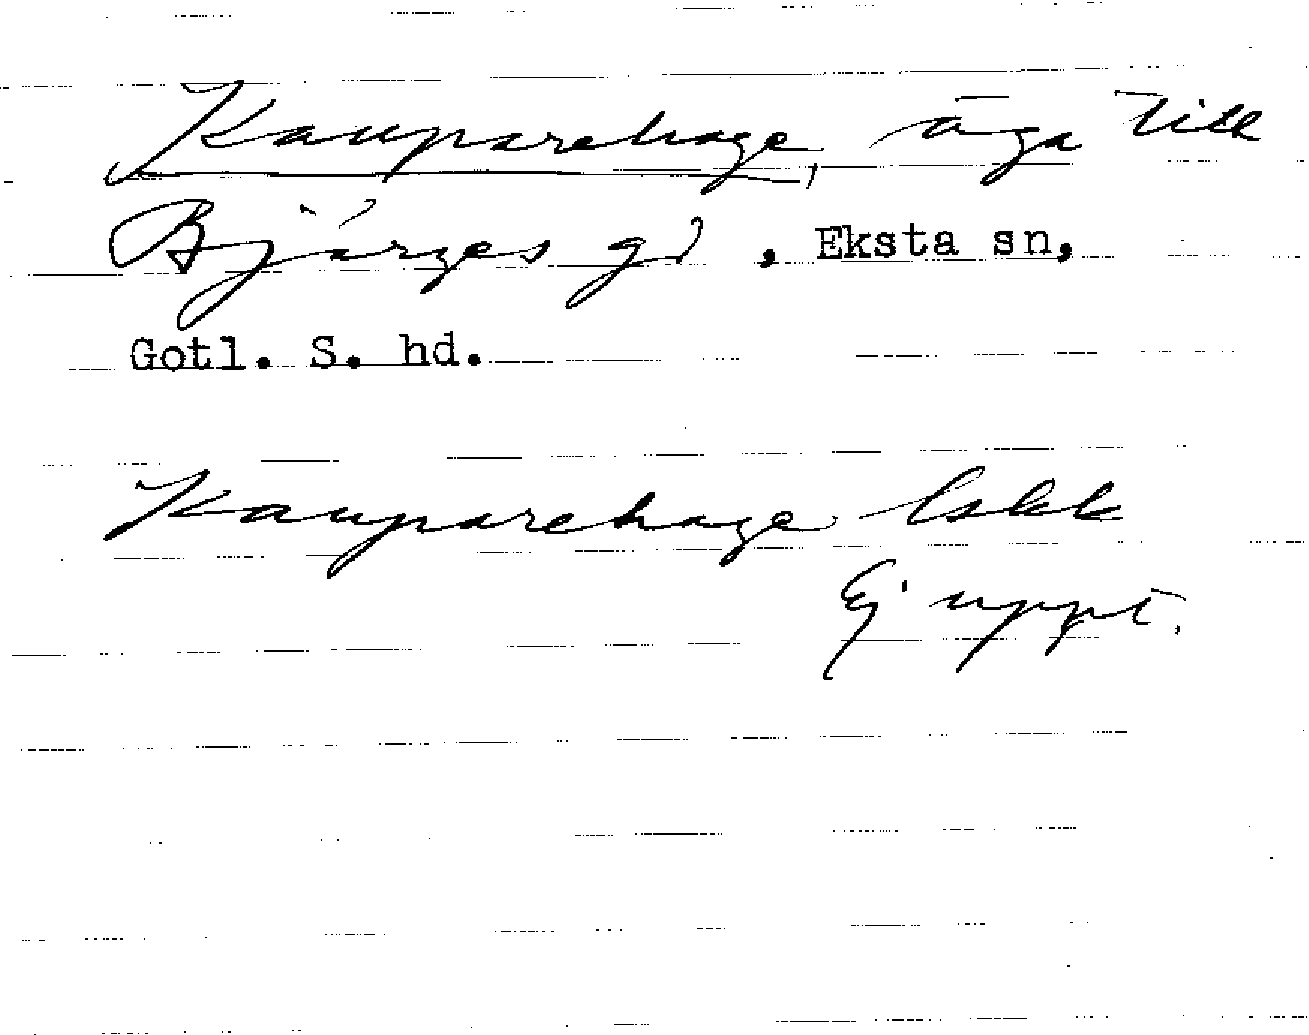 Kauparehage, äga till
Bjärges gd, Eksta sn,
Gotl. S. hd.
Kauparehage lskk
Ej uppt.